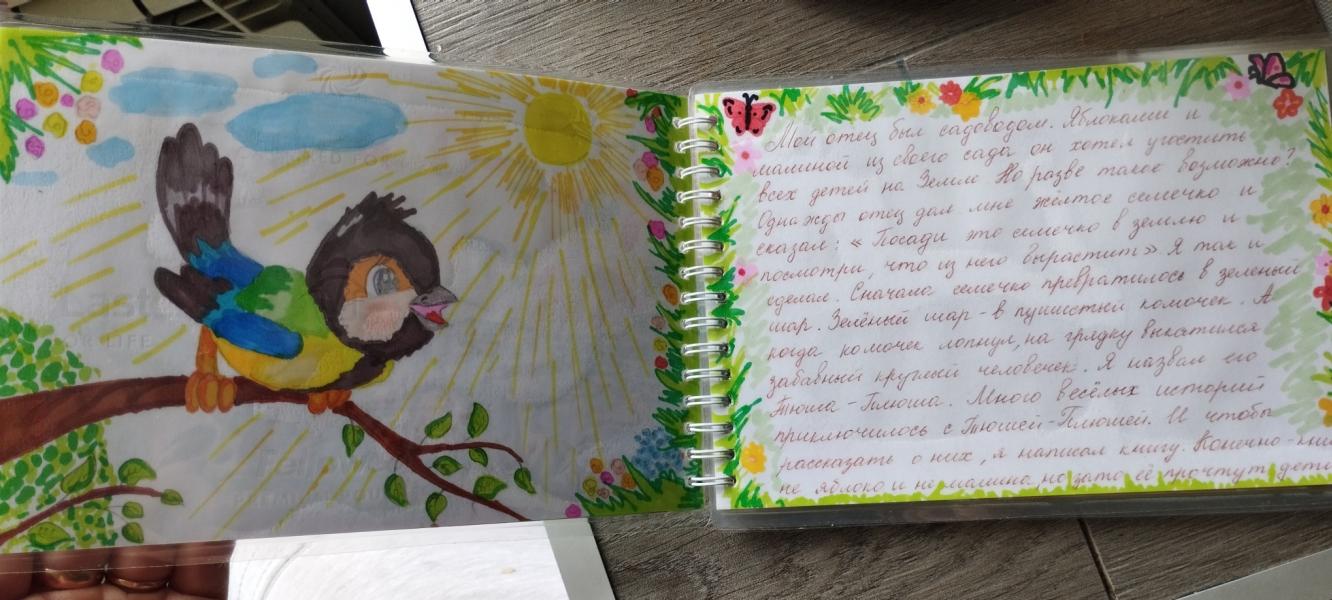 Мой отец был садоводом. Яблоками и
малиной из своего сада он хотел угостить
всех детей на Земле. Но разве такое возможно?
Однажды отец дал мне жёлтое семечко и
сказал: «Посади это семечко в землю и
посмотри, что из него вырастит». Я так и
сделал. Сначала семечко превратилось в зеленый
шар. Зелёный шар - в пушистый комочек. А
когда комочек лопнул, на грядку выкатился
забавный круглый человечек. Я назвал его
Тюша-Плюша. Много весёлых историй
приключилось с Тюшей-Плюшей. И чтобы
рассказать о них, я написал книгу. Конечно-
не яблоко и не малина, но зато её прочтут дети
FOR LIFE